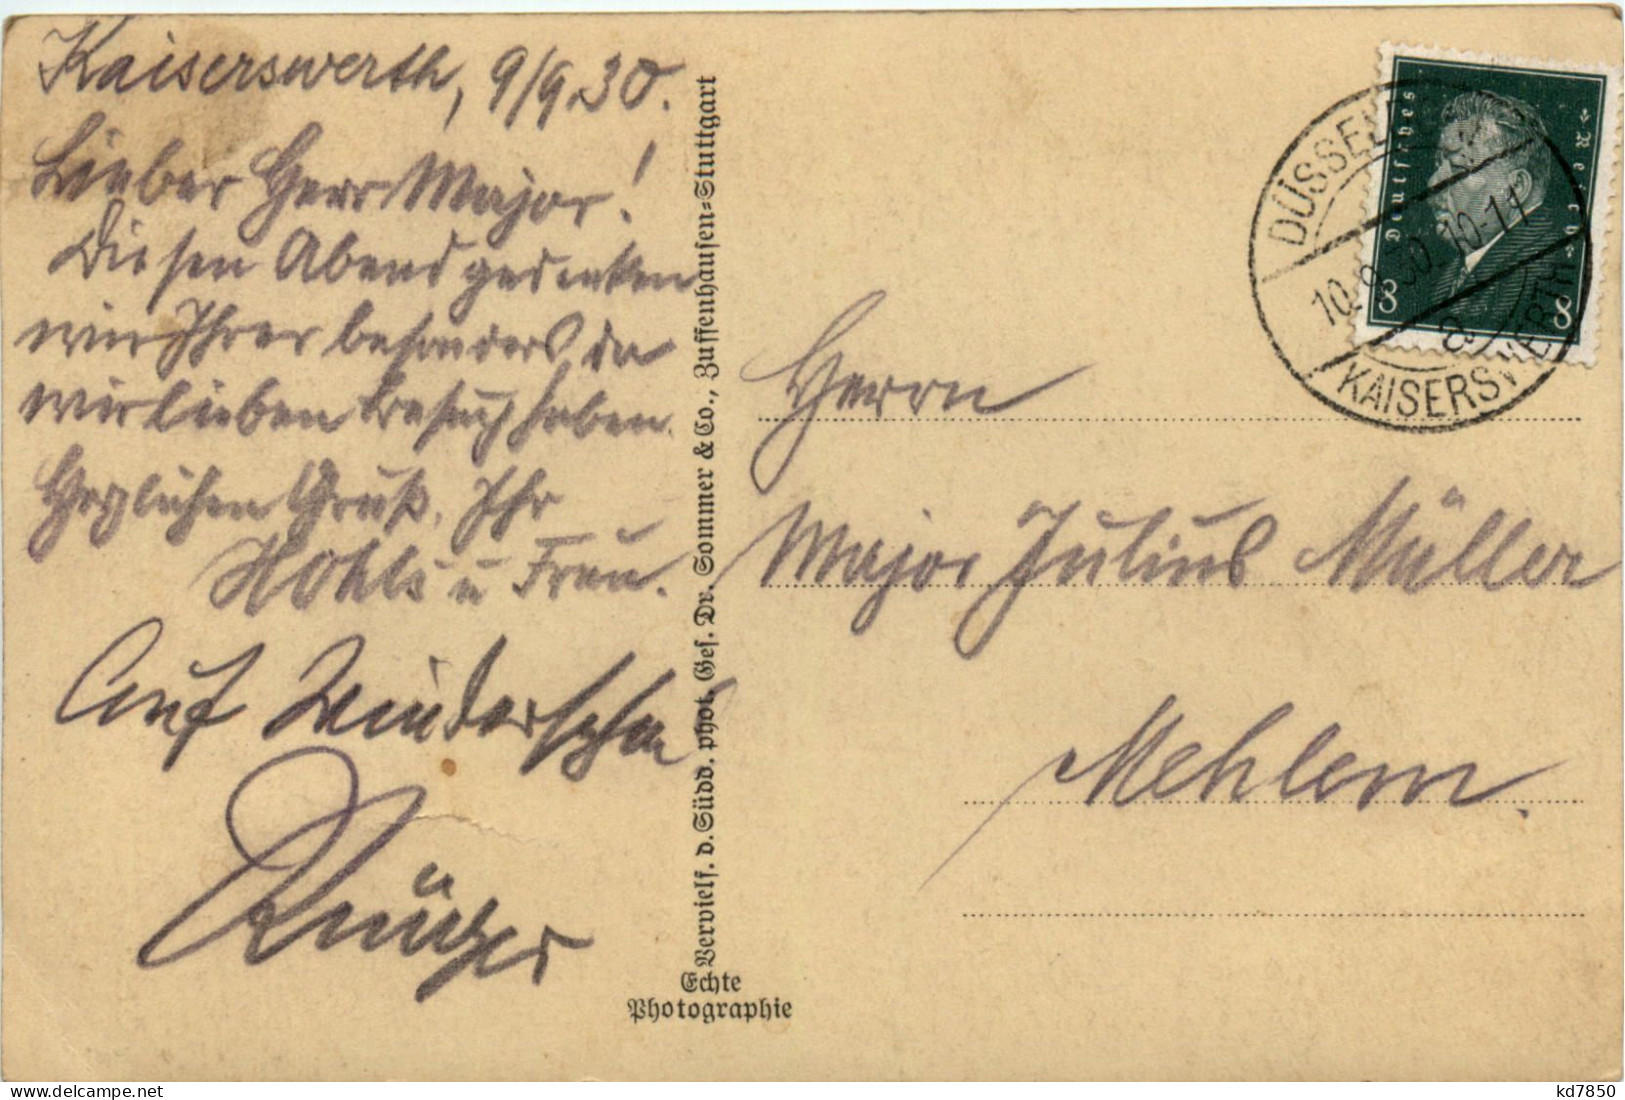 Kaiserswerth, 9/9.30.
Lieber Herr Major!
Diesen Abend gedenken
wir Ihrer besonders, da
wir lieben Besuch haben.
Herzlichen Gruß. Ihr
Hohls u Frau.
Auf Wiedersehn
Echte
Photographie
Vervielf. d. Südd. phot. Ges. Dr. Sommer & Co., Zuffenhausen-Stuttgart
DÜSSELDORF
10.9.30.10-11
a
KAISERSWERTH
Deutsches Reich
8 8
Herrn
Major Julius Müller
Mehlem.
delcampe.net
kd7850